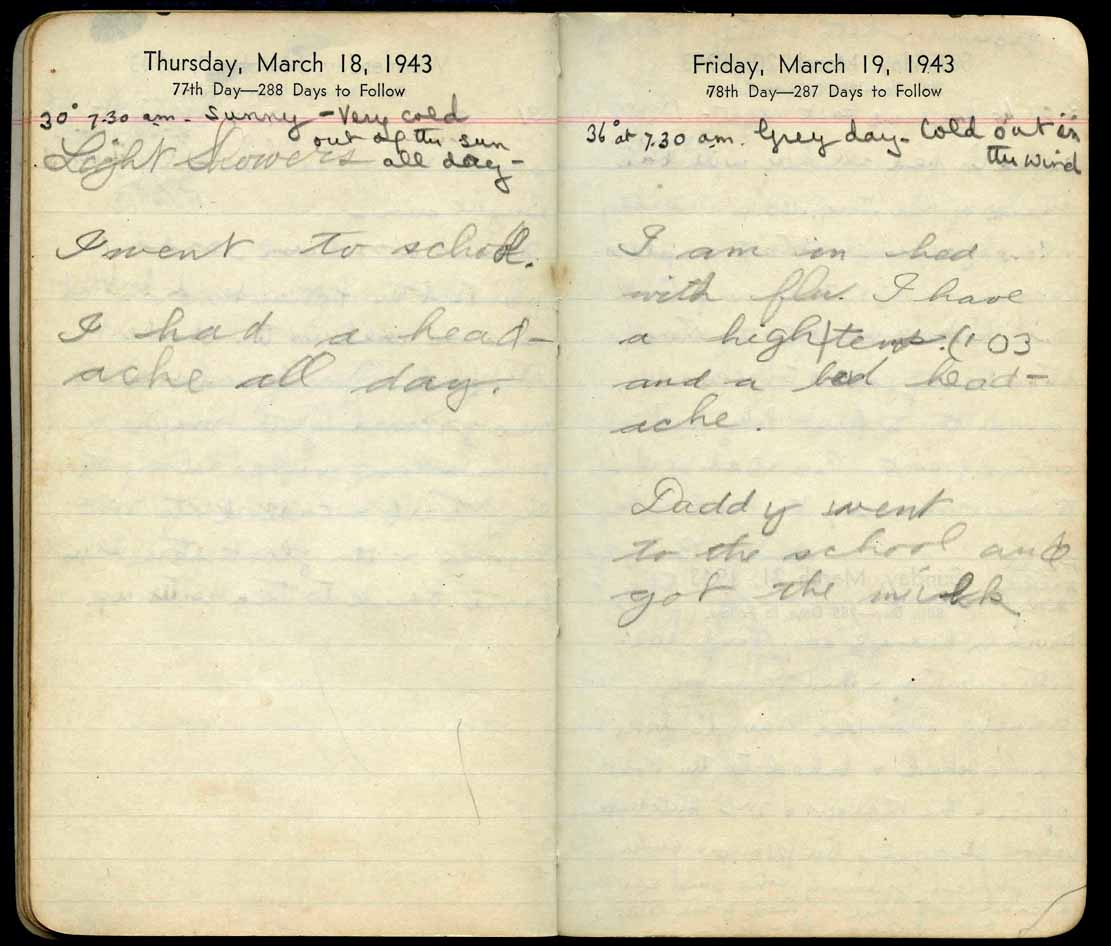 Thursday, March 18, 1943
77th Day—288 Days to Follow
30° 7.30 am. Sunny - Very cold
out of the sun
Light Showers all day -
I went to school.
I had a head-
ache all day.
Friday, March 19, 1943
78th Day—287 Days to Follow
36° at 7.30 am. Grey day - Cold out in
the wind
I am in bed
with flu. I have
a high temp. (103
and a bad head-
ache.
Daddy went
to the school and
got the milk